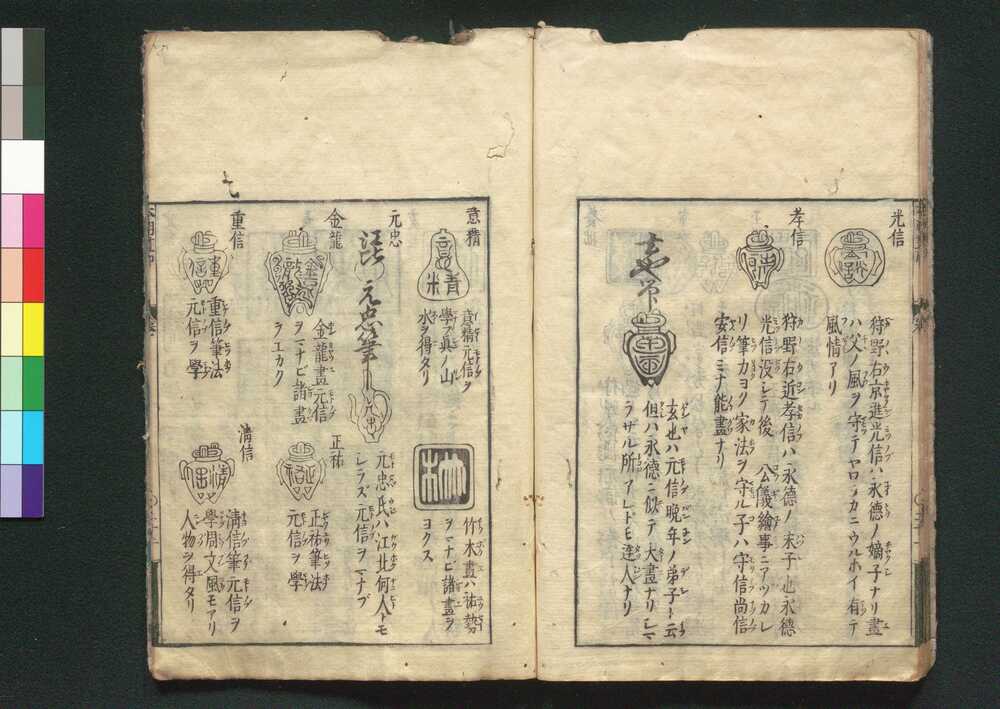 光信
狩野右京進光信ハ永徳ノ嫡子ナリ畫
ハ父ノ風ヲ守テヤロツカニウルホイ有テ
風情アリ
孝信
狩野右近孝信ハ永徳ノ末子也永徳
光信没シテ後公儀繪事ニアツカレ
リ筆力ヨク家法ヲ守ル子ハ守信尚信
安信ミナ能畫ナリ
玄也ハ元信晩年ノ弟子ト云
但ハ永徳ニ似テ大畫ナリシマ
ラザル所アレドモ達人ナリ
意精
意精
意精元信ヲ
學テ真ノ山
水ヲ得タリ
竹木畫ハ祐勢
ヲマナビ諸畫ヲ
ヨクス
元忠
元忠筆
元忠
元忠氏ハ江北何人トモ
シラズ元信ヲマナブ
金龍
金龍畫元信
ヲマナビ諸畫
ヲエカク
正祐
正祐筆法
元信ヲ學
重信
重信
重信筆法
元信ヲ學
清信
清信
清信筆元信ヲ
學用文風モアリ
人物ヲ得タリ